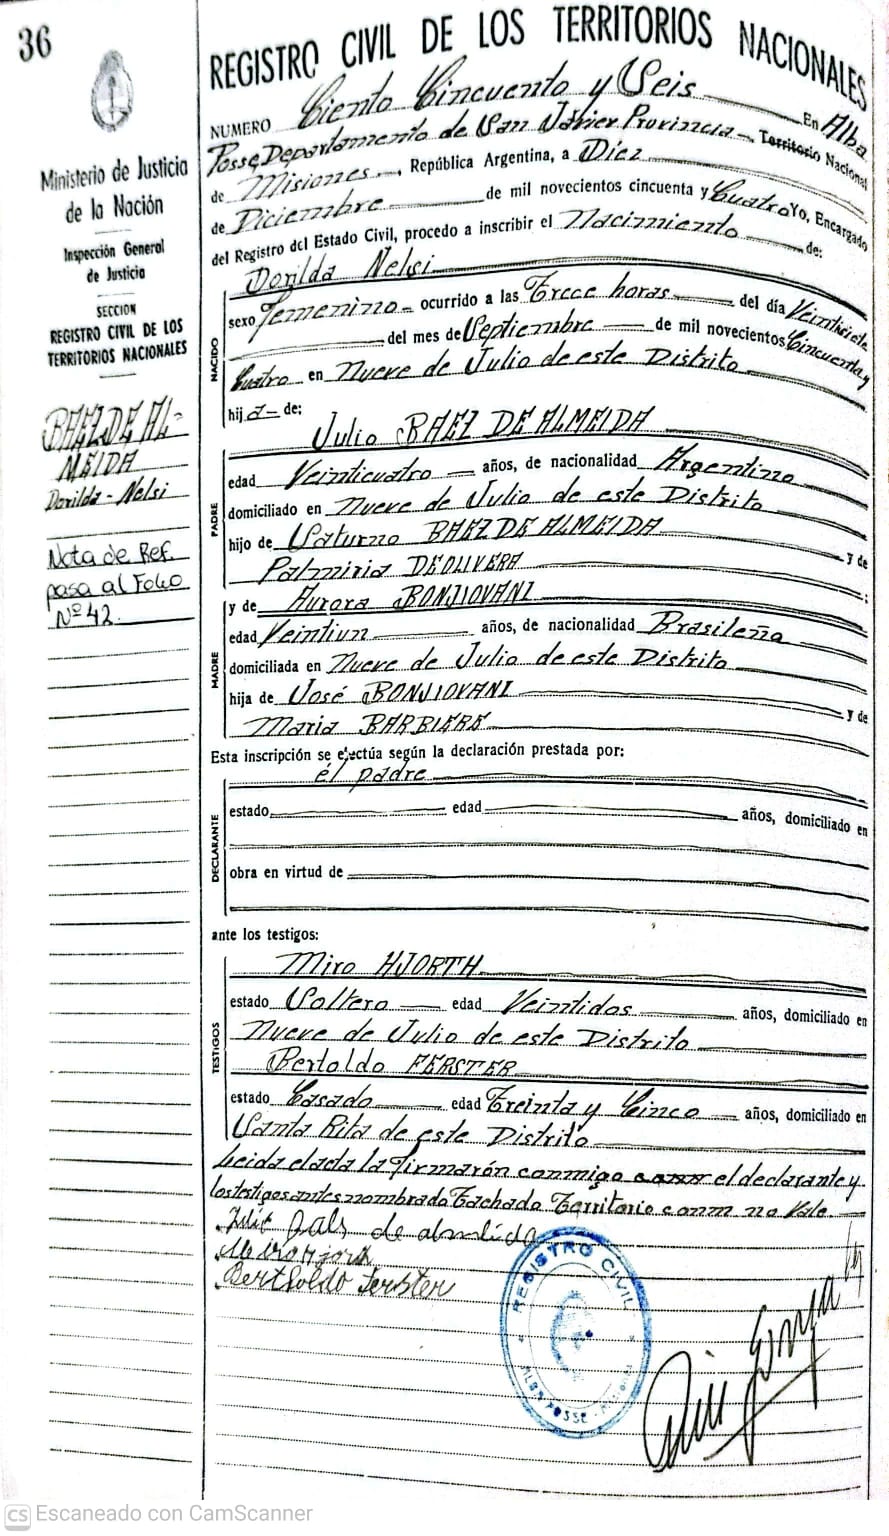 36
REGISTRO CIVIL DE LOS TERRITORIOS NACIONALES
Ministerio de Justicia
de la Nación
Inspección General
de Justicia
SECCION
REGISTRO CIVIL DE LOS
TERRITORIOS NACIONALES
BAEZ DE AL-
MEIDA
Dorilda - Nelsi
Nota de Ref.
pasa al Folio
Nº 42
NUMERO Ciento Cincuento y Seis En Alba
Posse, Departamento de San Javier Provincia Territorio Nacional
de Misiones, República Argentina, a Diez
de Diciembre de mil novecientos cincuenta y Cuatro Yo, Encargado
del Registro del Estado Civil, procedo a inscribir el Nacimiento de:
NACIDO
Dorilda Nelsi
sexo Femenino ocurrido a las Trece horas del día Veintisiete
del mes de Septiembre de mil novecientos Cincuenta y
Cuatro en Nueve de Julio de este Distrito
hij a de:
PADRE
Julio BAEZ DE ALMEIDA
edad Veinticuatro años, de nacionalidad Argentino
domiciliado en Nueve de Julio de este Distrito
hijo de Saturno BAEZ DE ALMEIDA y de
Palmiria DE OLIVERA ;
MADRE
y de Aurora BONJIOVANI
edad Veintiun años, de nacionalidad Brasileña
domiciliada en Nueve de Julio de este Distrito
hija de José BONJIOVANI y de
Maria BARBIERE
Esta inscripción se efectúa según la declaración prestada por:
DECLARANTE
él padre
estado edad años, domiciliado en
obra en virtud de
ante los testigos:
TESTIGOS
Miro HJORTH
estado Soltero edad Veintidos años, domiciliado en
Nueve de Julio de este Distrito
Bertoldo FERSTER
estado Casado edad Treinta y Cinco años, domiciliado en
Santa Rita de este Distrito
Leida el acta la firmarón conmigo el declarante y
los testigos antes nombrado Tachado Territorio conm no Vale
de almeida
Miro Hjorth
Bertholdo Ferster
REGISTRO CIVIL
ALBA POSSE - Misiones
CS Escaneado con CamScanner